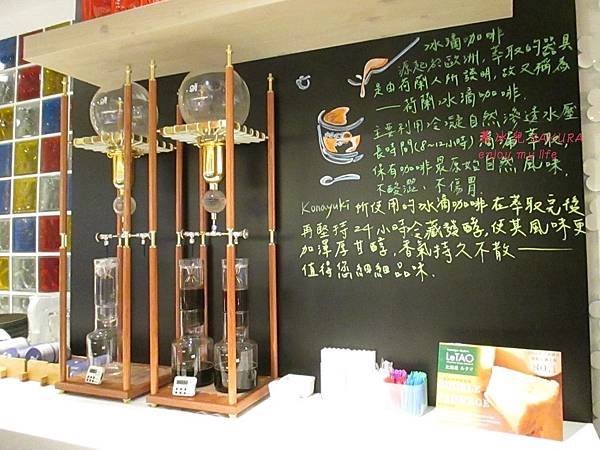 冰滴咖啡
源起於歐洲,萃取的器具
是由荷蘭人所發明,故又稱為
——荷蘭冰滴咖啡.
主要利用冷凝自然滲透水壓
長時間(8~12小時) 萃取
保有咖啡最原始自然風味.
不酸澀、不傷胃.
Konayuki 所使用的冰滴咖啡在萃取完後
再堅持24小時冷藏發酵,使其風味更
加渾厚甘醇,香氣持久不散——
值得您細細品味.
SAKURA
enjoy my life
LeTAO
北海道
DOUBLE
FROMAGE